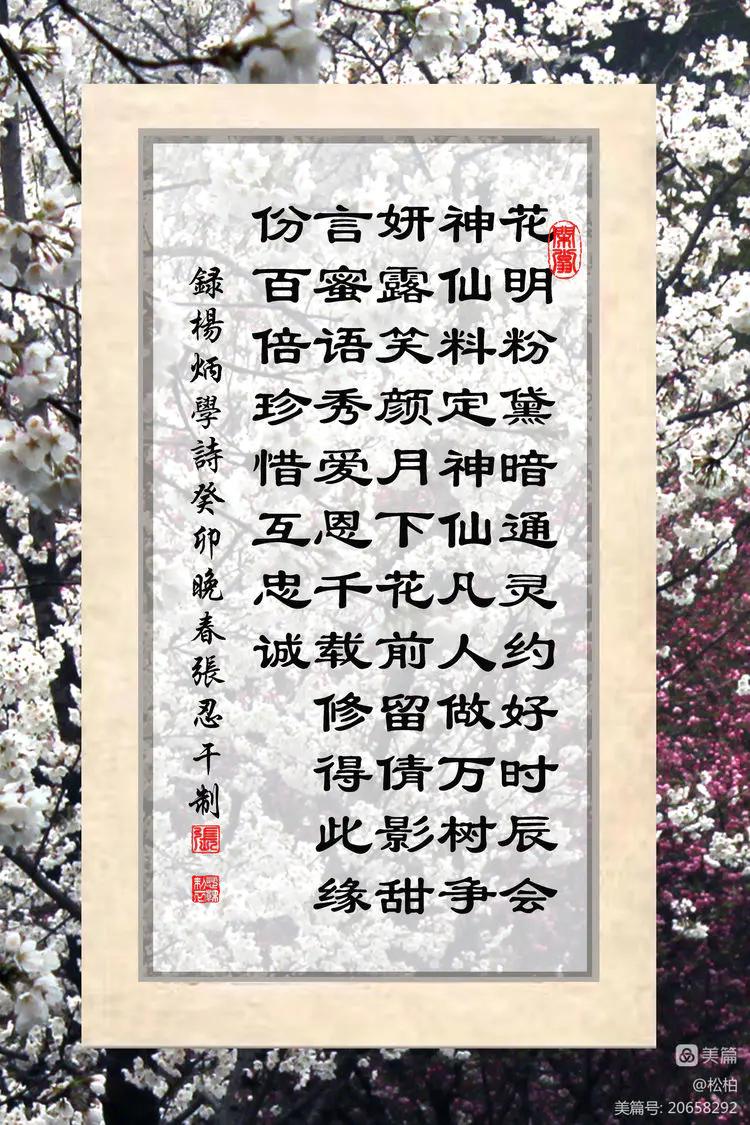 花明粉黛暗通灵约好时辰会
神仙料定神仙凡人做万树争
妍露笑颜月下花前留倩影甜
言蜜语秀爱恩千载修得此缘
份百倍珍惜互忠诚
録楊炳學詩癸卯晚春張忍干制
張
美篇
@松柏
美篇号: 20658292